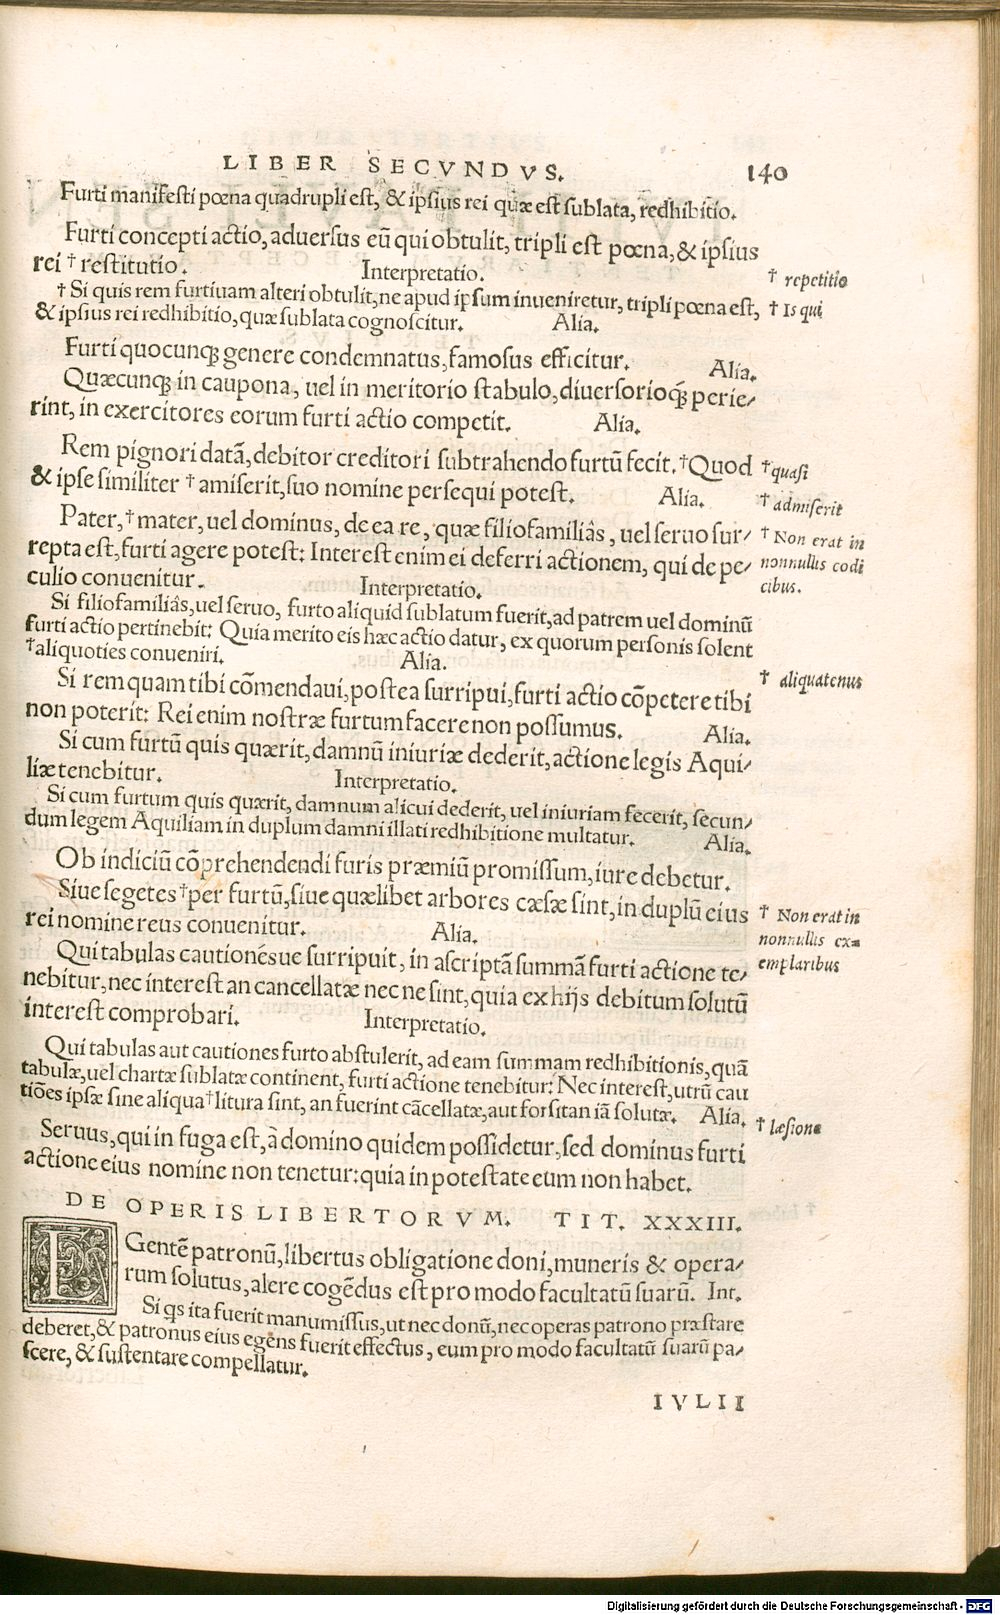 LIBER SECVNDVS. 140
Furti manifesti pœna quadrupli est, & ipsius rei quæ est sublata, redhibitio.
Furti concepti actio, aduersus eũ qui obtulit, tripli est pœna, & ipsius
rei † restitutio. Interpretatio. † repetitio
† Si quis rem furtiuam alteri obtulit, ne apud ipsum inueniretur, tripli pœna est, † Is qui
& ipsius rei redhibitio, quæ sublata cognoscitur. Alia.
Furti quocunqꝫ genere condemnatus, famosus efficitur. Alia.
Quæcunqꝫ in caupona, uel in meritorio stabulo, diuersorioqꝫ perie/
rint, in exercitores eorum furti actio competit. Alia.
Rem pignori datã, debitor creditori subtrahendo furtũ fecit. † Quod † quasi
& ipse similiter † amiserit, suo nomine persequi potest. Alia. † admiserit
Pater, † mater, uel dominus, de ea re, quæ filiofamiliâs, uel seruo sur/ † Non erat in
repta est, furti agere potest: Interest enim ei deferri actionem, qui de pe/ nonnullis codi
culio conuenitur. Interpretatio. cibus.
Si filiofamiliâs, uel seruo, furto aliquid sublatum fuerit, ad patrem uel dominũ
furti actio pertinebit: Quia merito eis hæc actio datur, ex quorum personis solent
† aliquoties conueniri. Alia. † aliquatenus
Si rem quam tibi cõmendaui, postea surripui, furti actio cõpetere tibi
non poterit: Rei enim nostræ furtum facere non possumus. Alia.
Si cum furtũ quis quærit, damnũ iniuriæ dederit, actione legis Aqui/
liæ tenebitur. Interpretatio.
Si cum furtum quis quærit, damnum alicui dederit, uel iniuriam fecerit, secun/
dum legem Aquiliam in duplum damni illati redhibitione multatur. Alia.
Ob indiciũ cõprehendendi furis præmiũ promissum, iure debetur.
Siue segetes † per furtũ, siue quælibet arbores cæsæ sint, in duplũ eius † Non erat in
rei nomine reus conuenitur. Alia. nonnullis ex=
Qui tabulas cautionésue surripuit, in ascriptã summã furti actione te/ emplaribus
nebitur, nec interest an cancellatæ nec ne sint, quia ex hijs debitum solutũ
interest comprobari. Interpretatio.
Qui tabulas aut cautiones furto abstulerit, ad eam summam redhibitionis, quã
tabulæ, uel chartæ sublatæ continent, furti actione tenebitur: Nec interest, utrũ cau
tiões ipsæ sine aliqua † litura sint, an fuerint cãcellatæ, aut forsitan iã solutæ. Alia. † læsione
Seruus, qui in fuga est, à domino quidem possidetur, sed dominus furti
actione eius nomine non tenetur: quia in potestate eum non habet.
DE OPERIS LIBERTORVM. TIT. XXXIII.
EGentẽ patronũ, libertus obligatione doni, muneris & opera/
rum solutus, alere cogẽdus est pro modo facultatũ suarũ. Int.
Si qs ita fuerit manumissus, ut nec donũ, nec operas patrono præstare
deberet, & patronus eius egens fuerit effectus, eum pro modo facultatũ suarũ pa/
scere, & sustentare compellatur.
IVLII
Digitalisierung gefördert durch die Deutsche Forschungsgemeinschaft - DFG